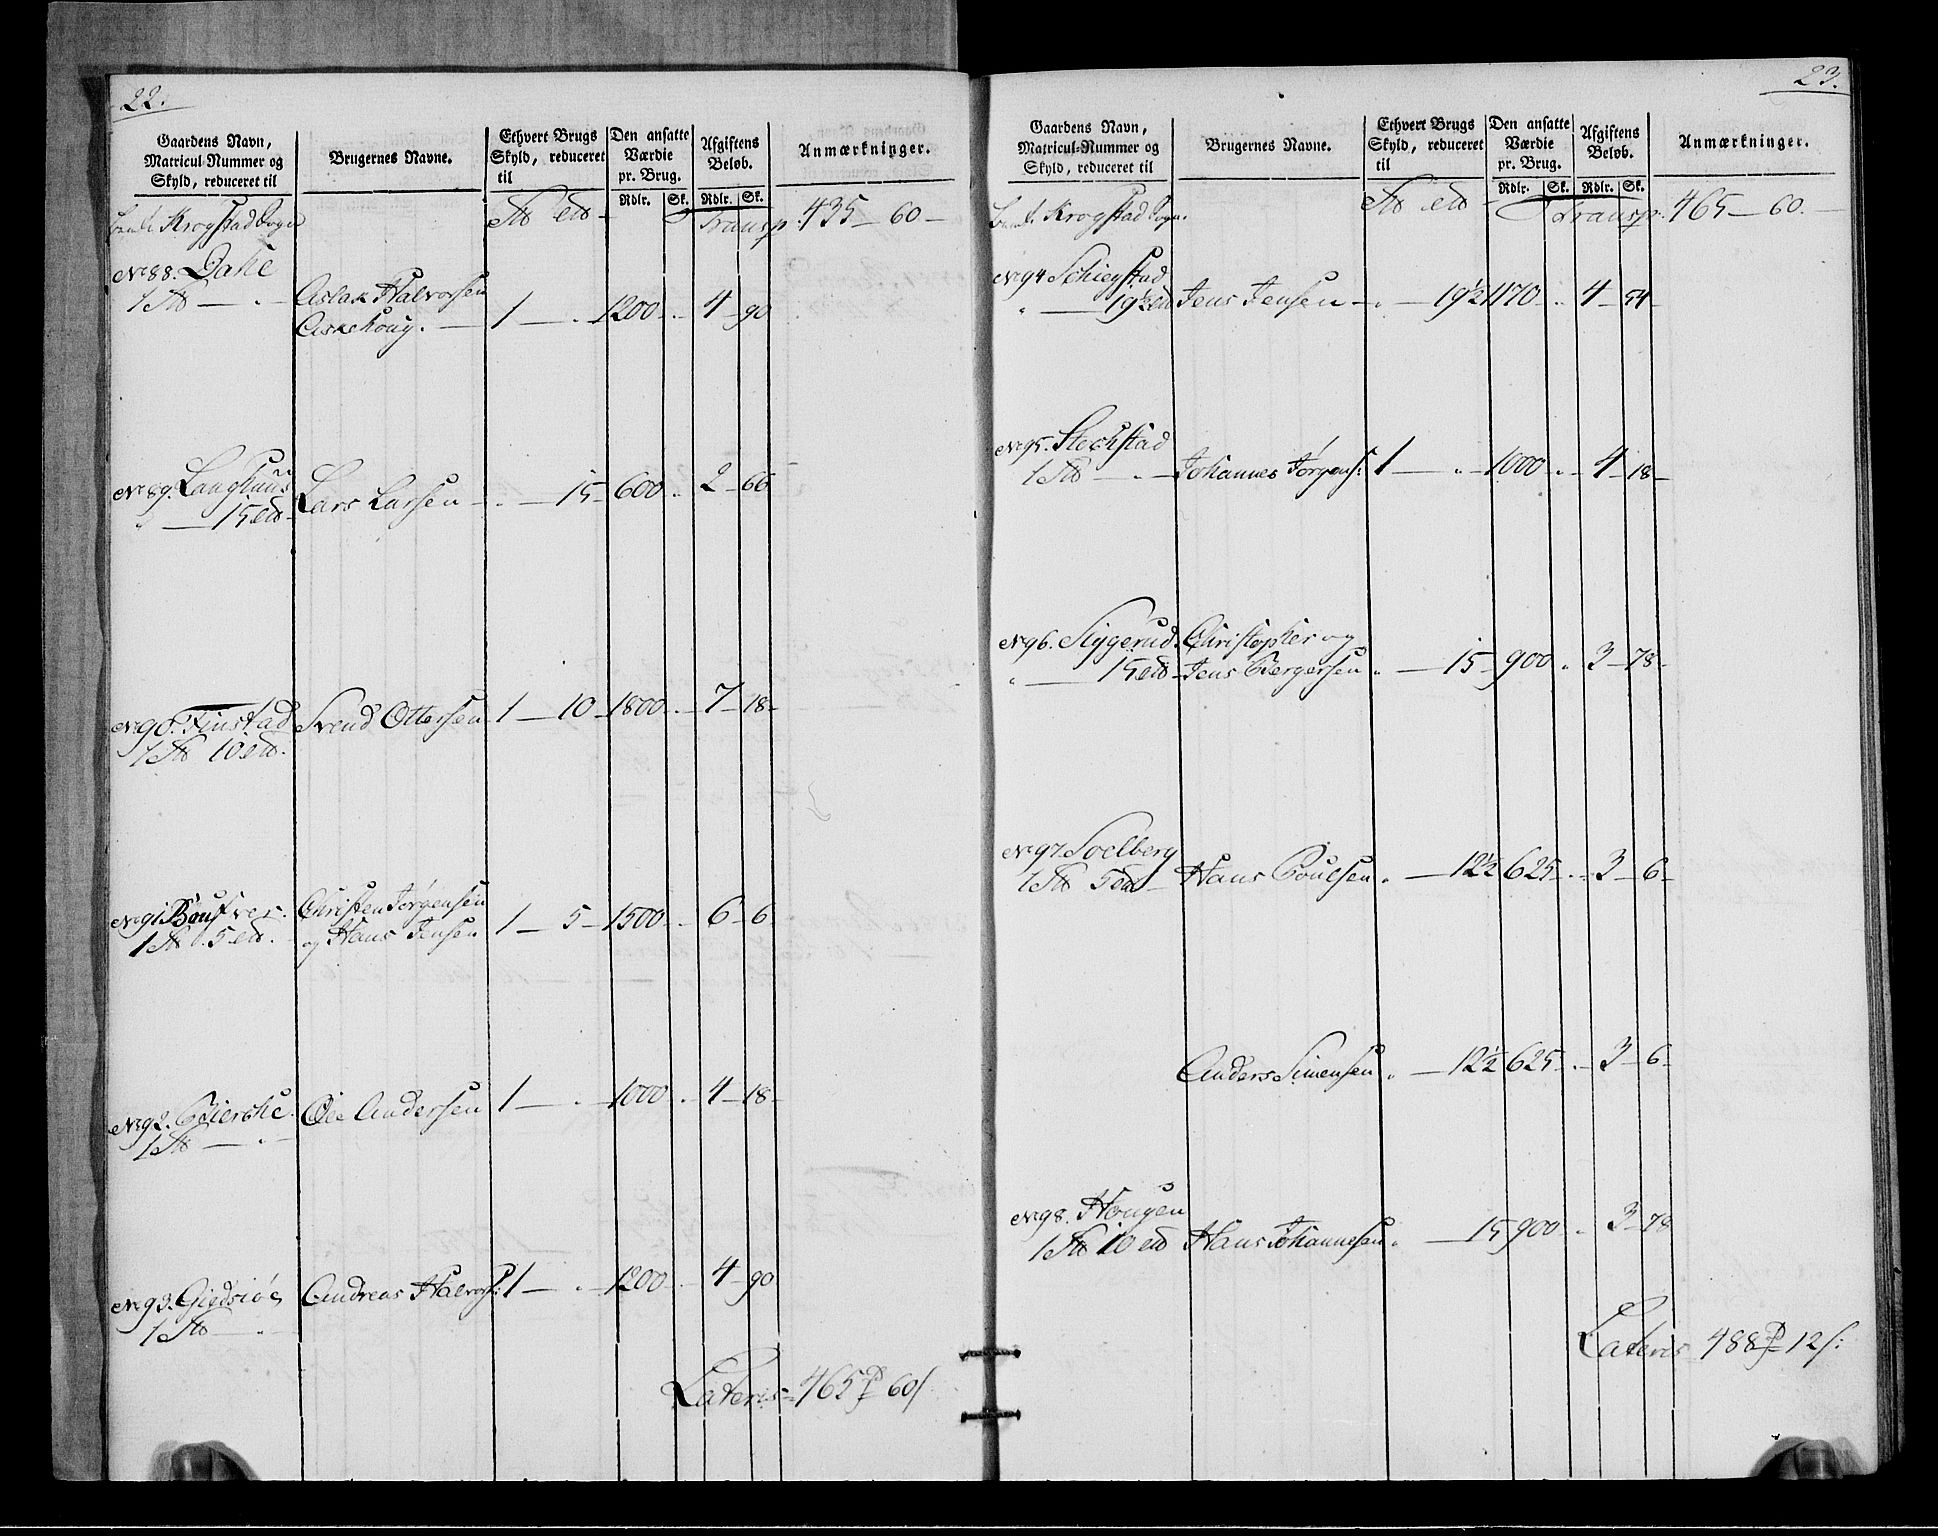 22.
Gaardens Navn, Matricul-Nummer og Skyld, reduceret til
Brugernes Navne.
Ethvert Brugs Skyld, reduceret til
Den ansatte Værdie pr. Brug.
Afgiftens Beløb.
Anmærkninger.
Rdlr. Sk. Rdlr. Sk.
Krogstad Sogn Transp: 435 - 60 -
No 88. Dahle
1 - " - Aslak Halvorsen
Askehoug. - 1 - " - 1200 - " - 4 - 90
No 89. Langhuus Lars Larsen - " - 15 - 600 - " - 2 - 66
" - 15
No 90. Finstad Svend Ottersen - 1 - 10 - 1800 - " - 7 - 18 -
1 10
No 91. Christen Jørgensen
1 5 og Hans Jensen 1 - 5 - 1500 - " - 6 - 6
No 92. Bierche Ole Andersen 1 - " - 1000 - " - 4 - 18 -
1 - " -
No 93. Giedsiøe Andreas Halvors: 1 - " - 1200 - " - 4 - 90
1 - " -
Lateris - 465 60
23.
Gaardens Navn, Matricul-Nummer og Skyld, reduceret til
Brugernes Navne.
Ethvert Brugs Skyld, reduceret til
Den ansatte Værdie pr. Brug.
Afgiftens Beløb.
Anmærkninger.
Rdlr. Sk. Rdlr. Sk.
Krogstad Sogn. Transp: 465 - 60. -
No 94 Schiegstad
" - 19½ Jens Jensen - " - 19½ 1170 - " - 4 - 54 -
No 95. Stechstad
1 - " - Johannes Jørgens: 1 - " - 1000 - " - 4 - 18 -
No 96. Siggerud Christopher og
" - 15 Jens Bergersen " - 15 - 900 - " - 3 - 78 -
No 97. Soelberg
1 5 Hans Poulsen " - 12½ 625 - " - 3 - 6 -
Anders Simensen " - 12½ 625 - " - 3 - 6 -
No 98. Hougen
1 10 Hans Johannesen " - 15 900 - " - 3 - 78
Lateris 488 12